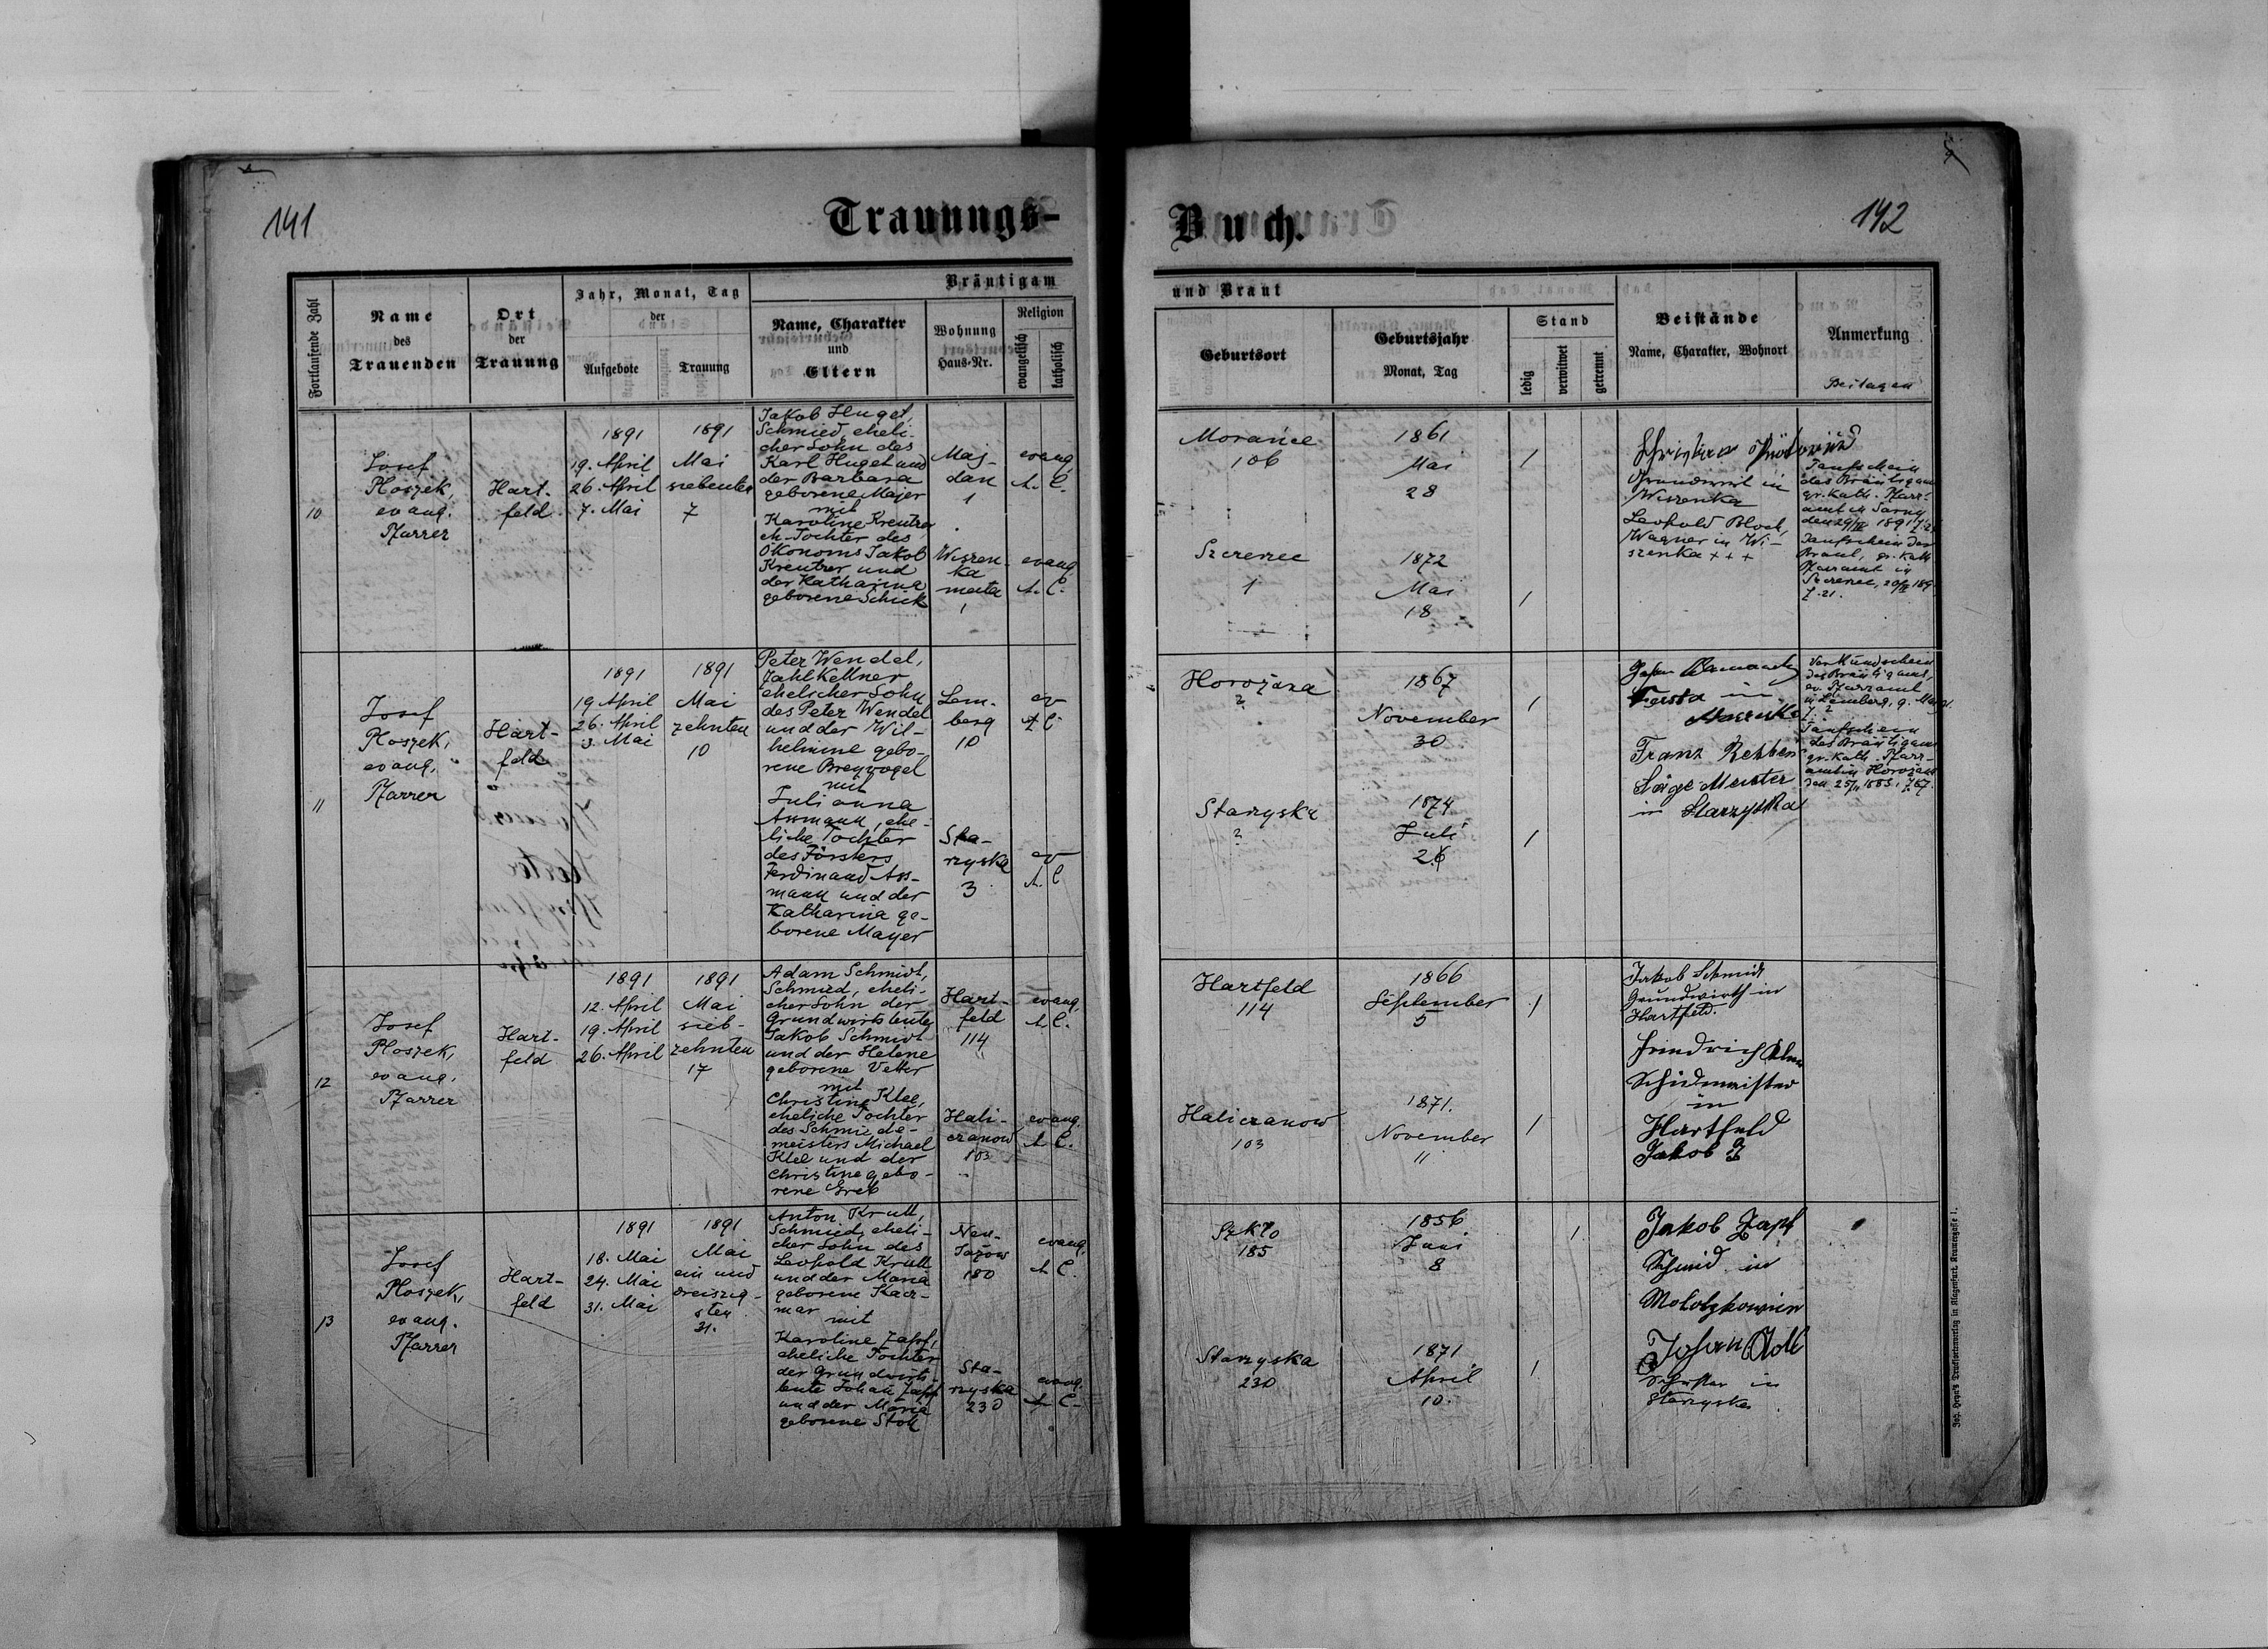 141
Trauungs-
Buch.
142
Fortlaufende Zahl
Name
des
Trauenden
Ort
der
Trauung
Jahr, Monat, Tag
der
Aufgebote
Trauung
Bräutigam
Name, Charakter
und
Eltern
Wohnung
Haus-Nr.
Religion
evangelisch
katholisch
und Braut
Geburtsort
Geburtsjahr
Monat, Tag
Stand
ledig
verwitwet
getrennt
Beistände
Name, Charakter, Wohnort
Anmerkung
Beilagen
10
Josef
Ploszek,
evang.
Pfarrer
Hart-
feld
1891
19. April
26. April
7. Mai
1891
Mai
siebenten
7
Jakob Huget,
Schmied, eheli-
cher Sohn des
Karl Huget und
der Barbara
geborene Majer
mit
Karoline Kreutzer
eh. Tochter des
Ökonoms Jakob
Kreutzer und
der Katharina
geborene Schick
Maj-
dan
1
evang.
A. C.
Wiszen-
ka
1
evang
A. C.
Morańce
106
1861
Mai
28
/
Szczerzec
1
1872
Mai
18
/
Grundwirt in
Wiszenka
Leopold Bloch,
Wagner in Wi-
szenka +++
Taufschein
des Bräutigams
gr. kath. Pfarr-
amt in
Taufschein der
Braut, gr. kath
Pfarramt in
Z. 21.
11
Josef
Ploszek,
evang.
Pfarrer
Hart-
feld
1891
19 April
26. April
3. Mai
1891
Mai
zehnten
10
Peter Wendel,
Zahlkellner
ehelicher Sohn
des Peter Wendel
und der Wil-
helmine gebo-
rene Breyvogel
mit
Julianna
Assmann, ehe-
liche Tochter
des Försters
Ferdinand Ass-
mann und der
Katharina ge-
borene Mayer
Lem-
berg
10
ev
A C
Sta-
rzyska
3
ev
A. C
Horożana
?
1867
November
30
/
Starzyska
?
1874
Juli
26
/
in
Franz
Säge Meister
in Starzyska
Verkündschein
des Bräutigams,
ev. Pfarramt
in Lemberg, 9. Mai 91.
Z. ?
Taufschein
des Bräutigams
gr. kath. Pfarr-
amt in Horożana
12
Josef
Ploszek,
evang.
Pfarrer
Hart-
feld
1891
12. April
19. April
26. April
1891
Mai
sieb-
zehnten
17
Adam Schmidt,
Schmied, eheli-
cher Sohn der
Grundwirtsleute
Jakob Schmidt
und der Helene
geborene Vetter
mit
Christine Klee,
eheliche Tochter
des Schmiede-
meisters Michael
Klee und der
Christine gebo-
rene Greb
Hart-
feld
114
evang.
A. C.
Hali-
czanow
103
evang.
A. C.
Hartfeld
114
1866
September
5
/
Haliczanow
103
1871.
November
11
/
Jakob Schmidt
Grundwirth in
Hartfeld.
Friedrich
in
Hartfeld
Jakob
13
Josef
Ploszek,
evang.
Pfarrer
Hart-
feld
1891
18. Mai
24. Mai
31. Mai
1891
Mai
ein und
dreiszig-
sten
31.
Anton Krutt,
Schmied, eheli-
cher Sohn des
Leopold Krutt
und der Maria
geborene Kacz-
mar
mit
Karoline Zapf,
eheliche Tochter
der Grundwirts-
leute Johan Zapf
und der Maria
geborene Stok
Neu-
Jazow
180
evang.
A C.
Sta-
rzyska
230
evang.
A. C.
Szkło
185
1856
Juni
8
/
Starzyska
230
1871
April
10.
/
Jakob Zapf
Schmid in
Johan
in
Starzyska
Joh. Heyn's Drucksortenverlag in Klagenfurt, Kramergasse 1.